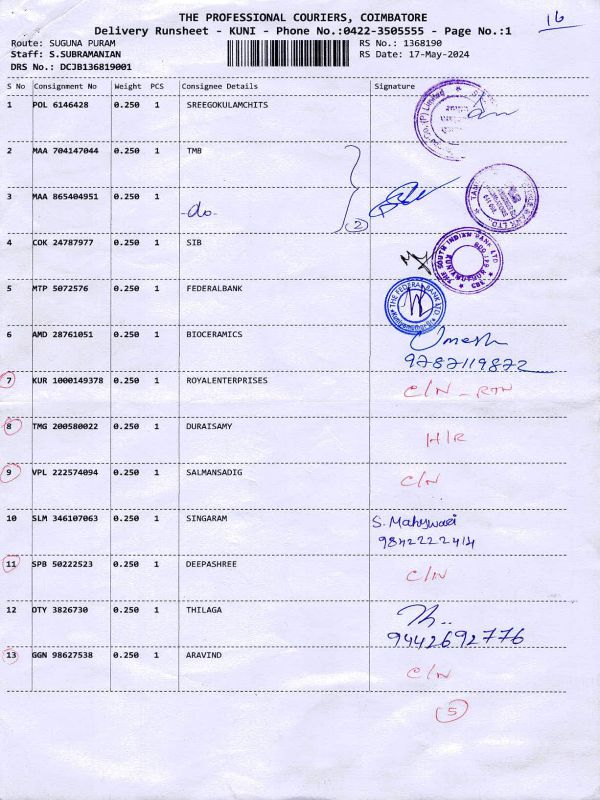 THE PROFESSIONAL COURIERS, COIMBATORE
16
Delivery Runsheet - KUNI - Phone No.:0422-3505555 - Page No.:1
Route: SUGUNA PURAM
RS No.: 1368190
Staff: S.SUBRAMANIAN
RS Date: 17-May-2024
DRS No.: DCJB136819001
S No Consignment No Weight PCS Consignee Details Signature
1 POL 6146428 0.250 1 SREEGOKULAMCHITS
2 MAA 704147044 0.250 1 TMB
3 MAA 865404951 0.250 1 -do-
2
4 COK 24787977 0.250 1 SIB
THE SOUTH INDIAN BANK LTD
5 MTP 5072576 0.250 1 FEDERALBANK
THE FEDERAL BANK LTD
6 AMD 28761051 0.250 1 BIOCERAMICS Umesh
9787119872
7 KUR 1000149378 0.250 1 ROYALENTERPRISES C/N - RTN
8 TMG 200580022 0.250 1 DURAISAMY H/R
9 VPL 222574094 0.250 1 SALMANSADIG C/N
10 SLM 346107063 0.250 1 SINGARAM S. Maheswari
9842222414
11 SPB 50222523 0.250 1 DEEPASHREE C/N
12 OTY 3826730 0.250 1 THILAGA
9442692776
13 GGN 98627538 0.250 1 ARAVIND C/N
5